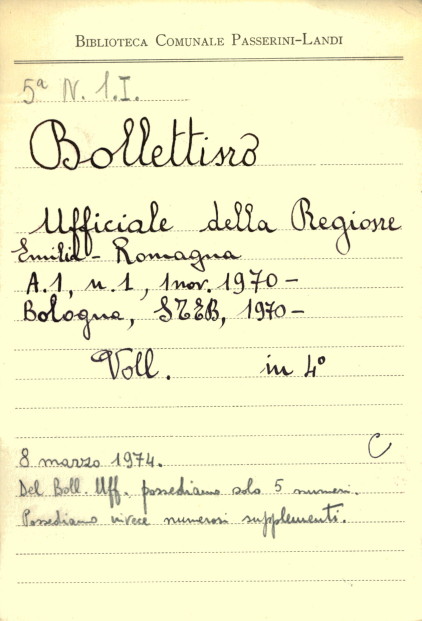 BIBLIOTECA COMUNALE PASSERINI-LANDI
5ª N. 1.I.
Bollettino
Ufficiale della Regione
Emilia - Romagna
A.1, n.1, 1 nov. 1970 -
Bologna, STEB, 1970 -
Voll. in 4°
C
8 marzo 1974.
Del Boll. Uff. possediamo solo 5 numeri.
Possediamo invece numerosi supplementi.